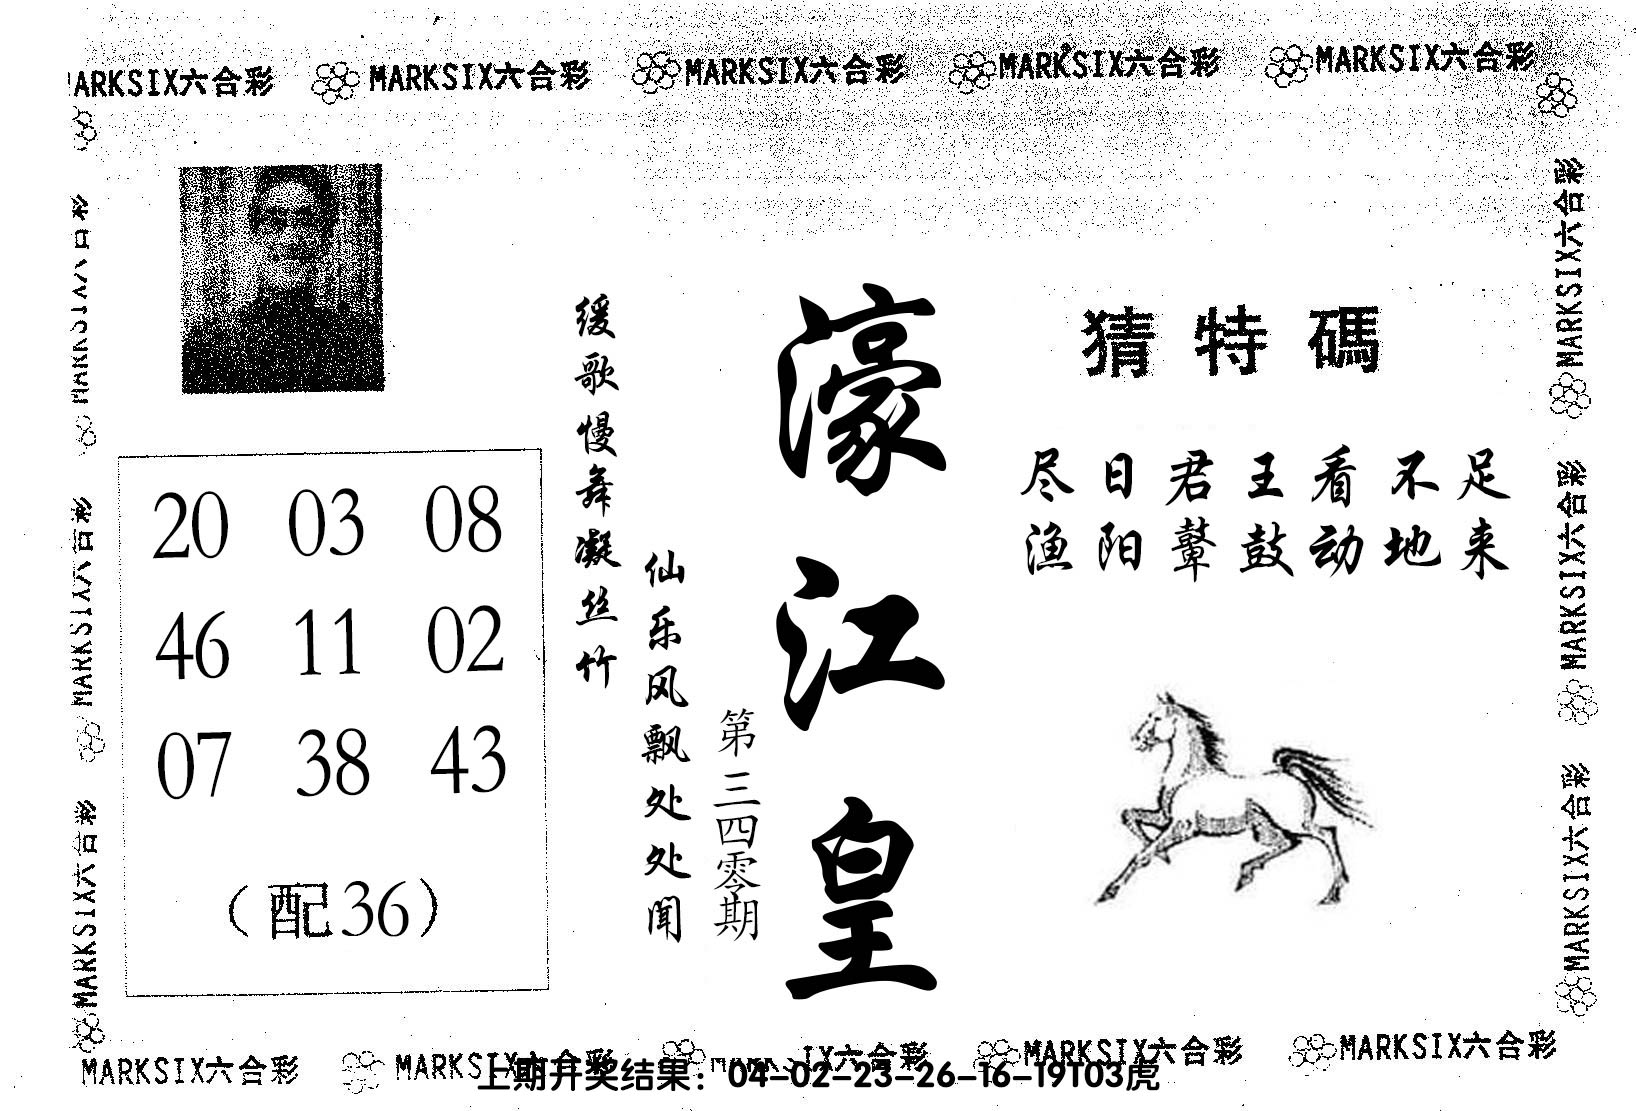 MARKSIX六合彩 MARKSIX六合彩 MARKSIX六合彩 MARKSIX六合彩 MARKSIX六合彩
猜特碼
尽日君王看不足
渔阳鼙鼓动地来
濠江皇
第三四零期
缓歌慢舞凝丝竹
仙乐风飘处处闻
20 03 08
46 11 02
07 38 43
（配36）
MARKSIX六合彩
MARKSIX六合彩
MARKSIX六合彩
MARKSIX六合彩
MARKSIX六合彩
MARKSIX六合彩
MARKSIX六合彩 MARKSIX六合彩 MARKSIX六合彩 MARKSIX六合彩 MARKSIX六合彩
上期开奖结果：04-02-23-26-16-19T03虎